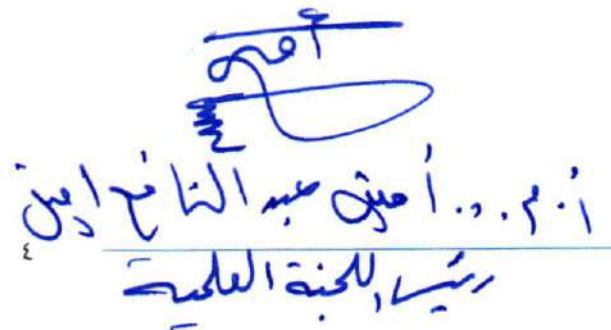 أمين
أ.م.د. أمين عبد النافع أمين
٤
رئيس اللجنة العلمية